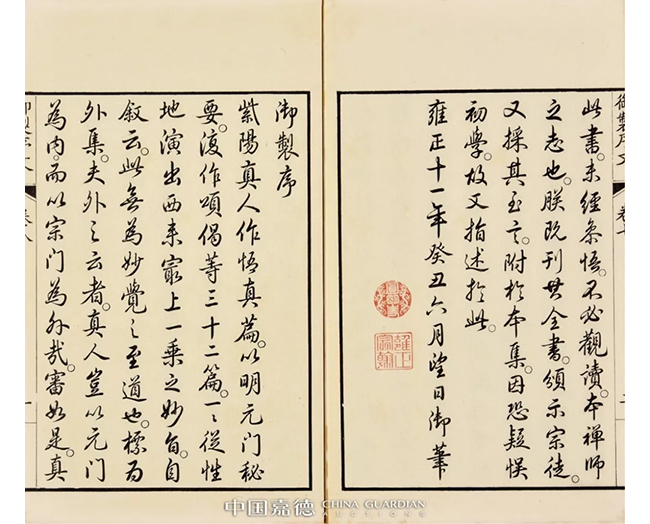 此書。未經參悟。不必觀讀。本禪師
之志也。朕既刊其全書。頒示宗徒。
又採其至言。附於本集。因恐疑悞
初學。故又指述於此。
雍正十一年癸丑六月望日御筆
雍正宸翰
御製序
紫陽真人作悟真篇。以明元門秘
要。復作頌偈等三十二篇。一一從性
地演出西來最上一乘之妙旨。自
敘云。此無為妙覺之至道也。標為
外集。夫外之云者。真人豈以元門
為內。而以宗門為外哉。審如是。真
中国嘉德 CHINA GUARDIAN
AUCTIONS